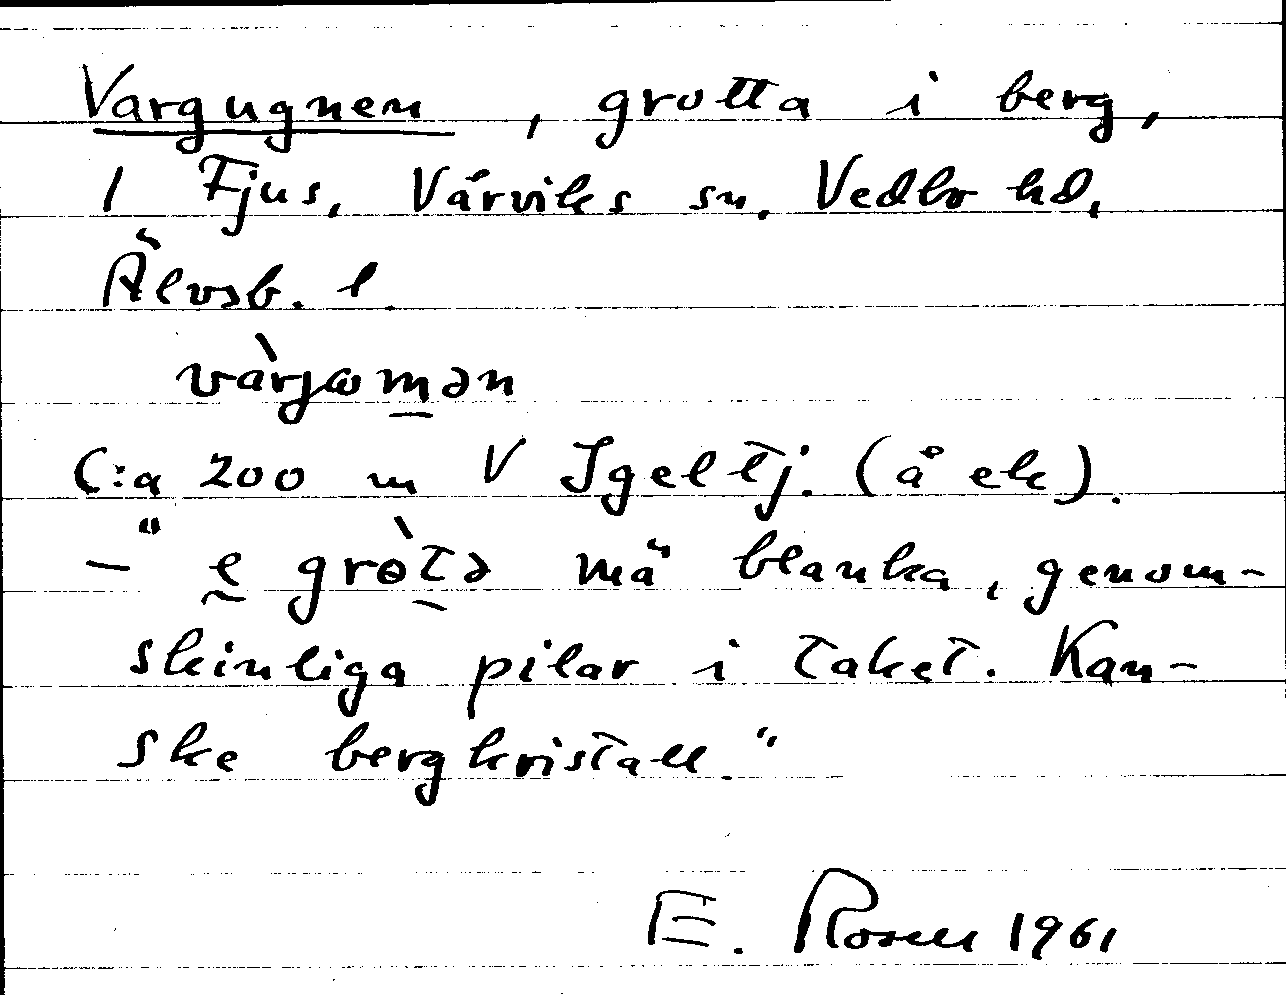 Vargugnen, grotta i berg,
1 Fjus, Vårviks sn. Vedbo hd,
Älvsb. l.
C:a 200 m V Igeltj. (å ek).
—" e gròtə mä blanka, genom-
skinliga pilar i taket. Kan-
ske bergkristall."
E. Rosell 1961